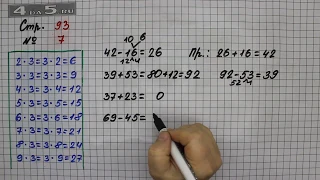 4 da 5.ru
Стр. 93
№ 7
2 · 3 = 3 · 2 = 6
3 · 3 = 3 · 3 = 9
4 · 3 = 3 · 4 = 12
5 · 3 = 3 · 5 = 15
6 · 3 = 3 · 6 = 18
7 · 3 = 3 · 7 = 21
8 · 3 = 3 · 8 = 24
9 · 3 = 3 · 9 = 27
10 6
42 - 16 = 26 Пр.: 26 + 16 = 42
39 + 53 = 80 + 12 = 92 92 - 53 = 39
37 + 23 = 0
69 - 45 =